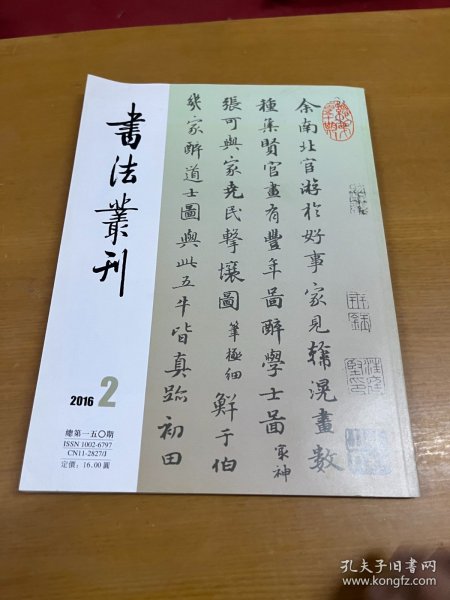 書法叢刊
2016 2
總第一五〇期
ISSN 1002-6797
CN11-2827/J
定價：16.00圓
余南北宦游於好事家見韓滉畫數
種集賢官畫有豐年圖醉學士圖
最神
張可與家堯民擊壤圖
筆極細
鮮于伯
幾家醉道士圖與此五牛皆真跡初田
孔夫子旧书网
www.kongfz.com